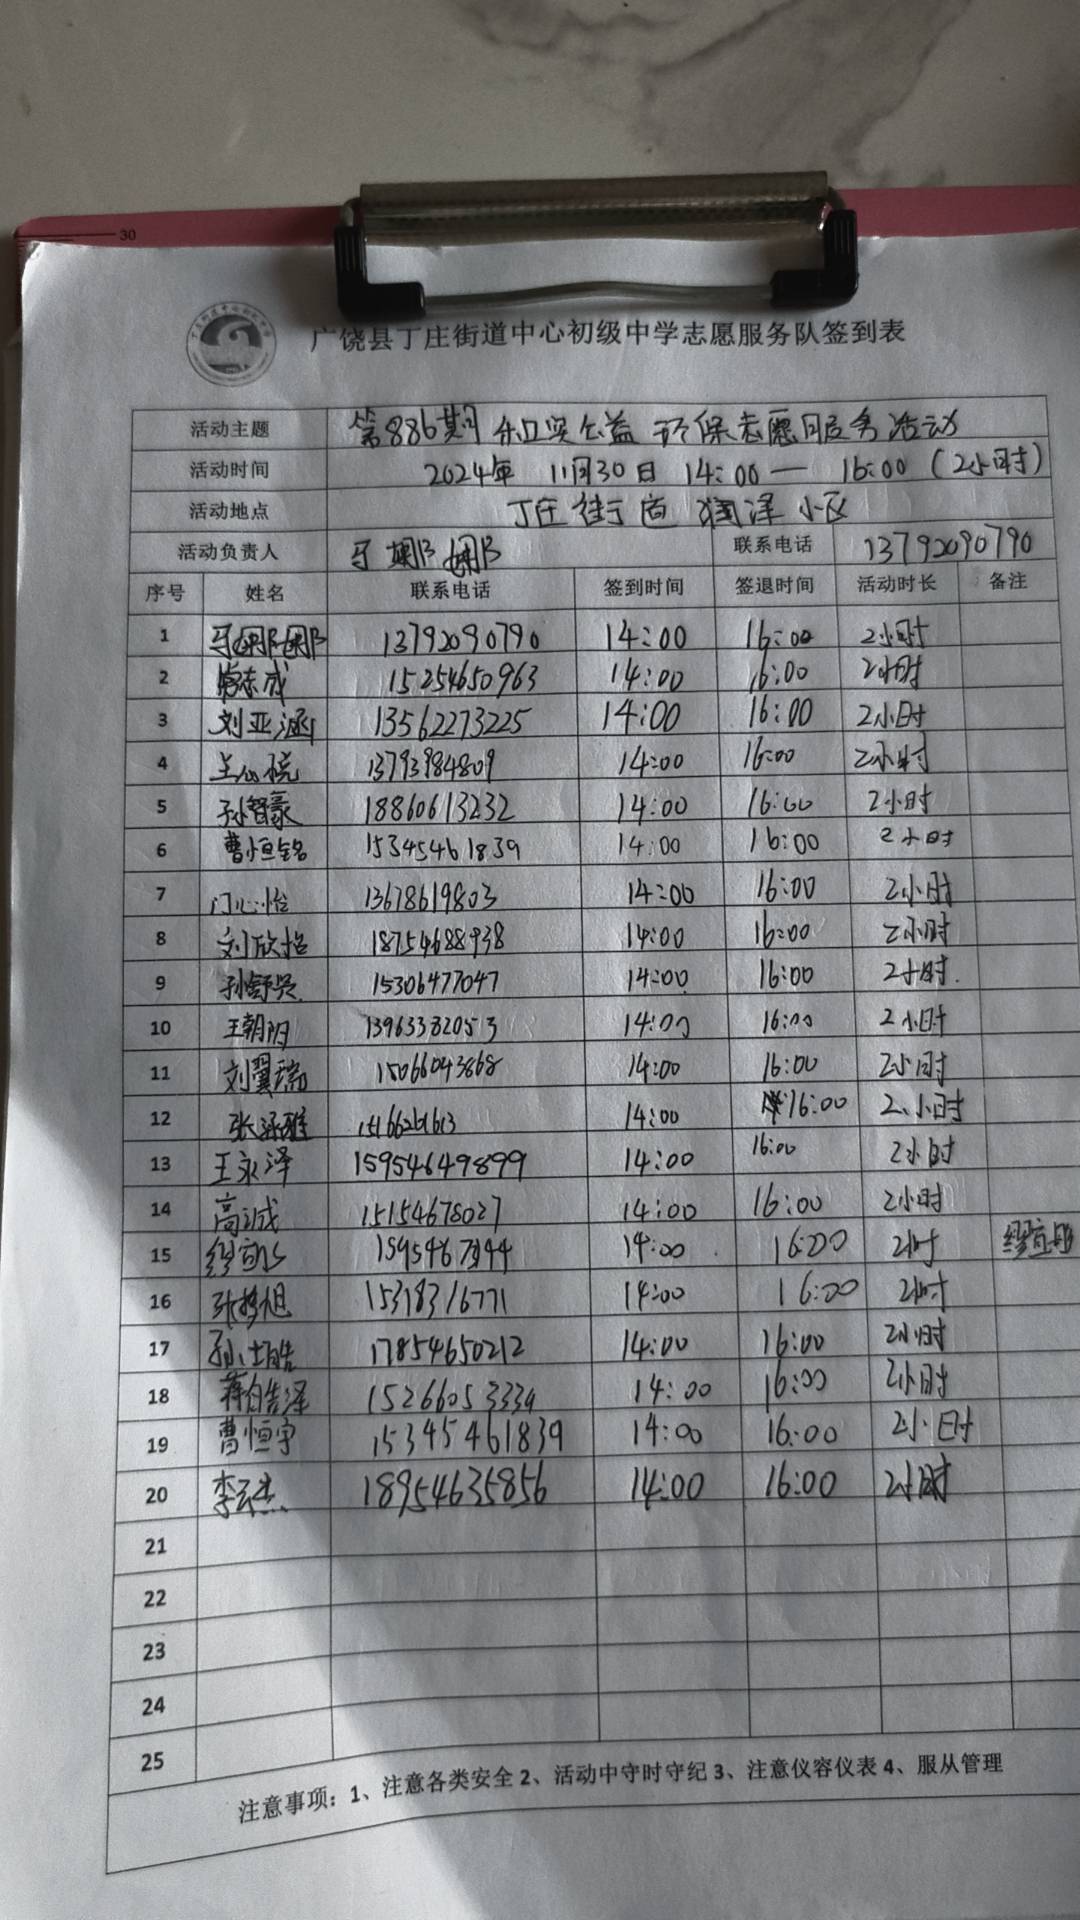 30
广饶县丁庄街道中心初级中学志愿服务队签到表
活动主题 第886期 和环安公益 环保志愿服务活动
活动时间 2024年 11月30日 14:00— 16:00（2小时）
活动地点 丁庄街道 润泽小区
活动负责人 联系电话 13792090790
序号 姓名 联系电话 签到时间 签退时间 活动时长 备注
1 13792090790 14:00 16:00 2小时
2 志成 15254650963 14:00 16:00 2小时
3 刘亚涵 13562273225 14:00 16:00 2小时
4 13793984809 14:00 16:00 2小时
5 孙智豪 18860613232 14:00 16:00 2小时
6 曹恒铭 15345461839 14:00 16:00 2小时
7 门心怡 13678619803 14:00 16:00 2小时
8 刘欣怡 18754688938 14:00 16:00 2小时
9 孙舒 15306477047 14:00 16:00 2小时
10 王朝阳 13963382053 14:00 16:00 2小时
11 刘翼瑞 15066043868 14:00 16:00 2小时
12 张涵雅 15166261613 14:00 16:00 2小时
13 王永泽 15954649899 14:00 16:00 2小时
14 高诚 15154678027 14:00 16:00 2小时
15 14:00 16:00 2小时
16 张梦旭 15318316771 14:00 16:00 2小时
17 孙士皓 17854650212 14:00 16:00 2小时
18 蒋皓泽 15266053339 14:00 16:00 2小时
19 曹恒宇 15345461839 14:00 16:00 2小时
20 李云杰 18954635856 14:00 16:00 2小时
21
22
23
24
25
注意事项：1、注意各类安全 2、活动中守时守纪 3、注意仪容仪表 4、服从管理